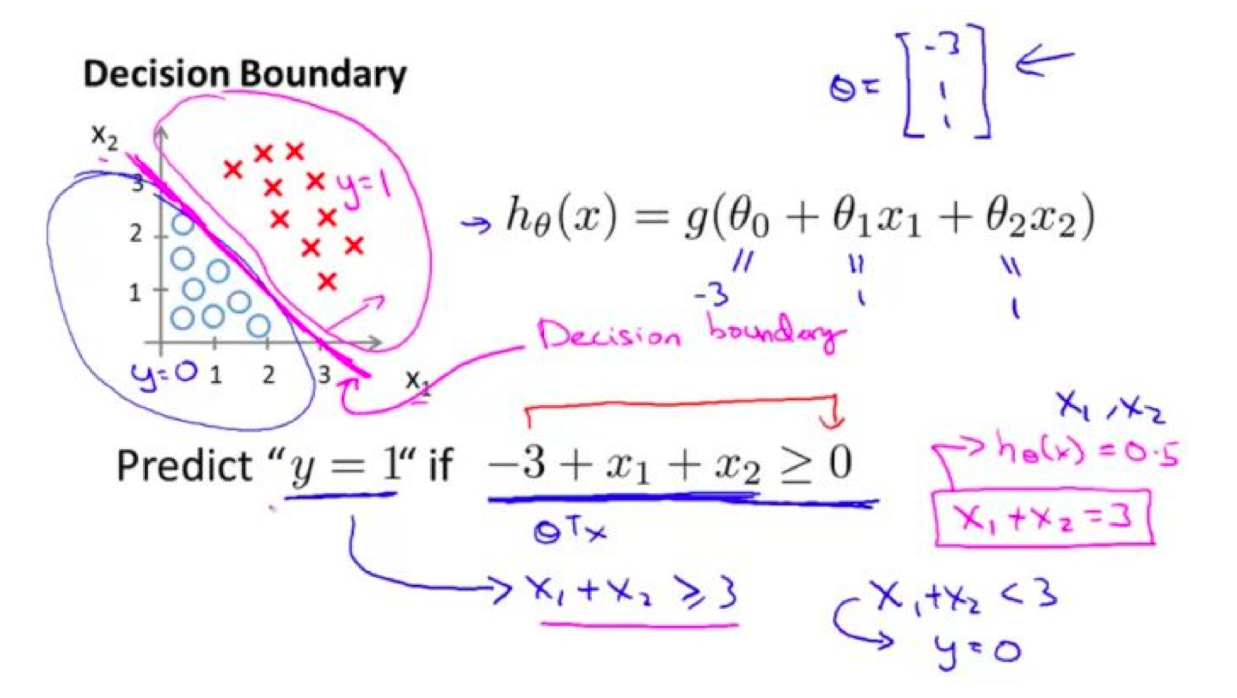 Decision Boundary
θ = [ -3 1 1 ] ←
x₂
3
2
1
y=1
y=0 1 2 3 x₁
→ hθ(x) = g(θ₀ + θ₁x₁ + θ₂x₂)
-3 1 1
Decision boundary
Predict “y = 1“ if −3 + x₁ + x₂ ≥ 0
θᵀx
→ x₁ + x₂ ≥ 3
x₁, x₂
→ hθ(x) = 0.5
x₁ + x₂ = 3
x₁ + x₂ < 3
→ y = 0